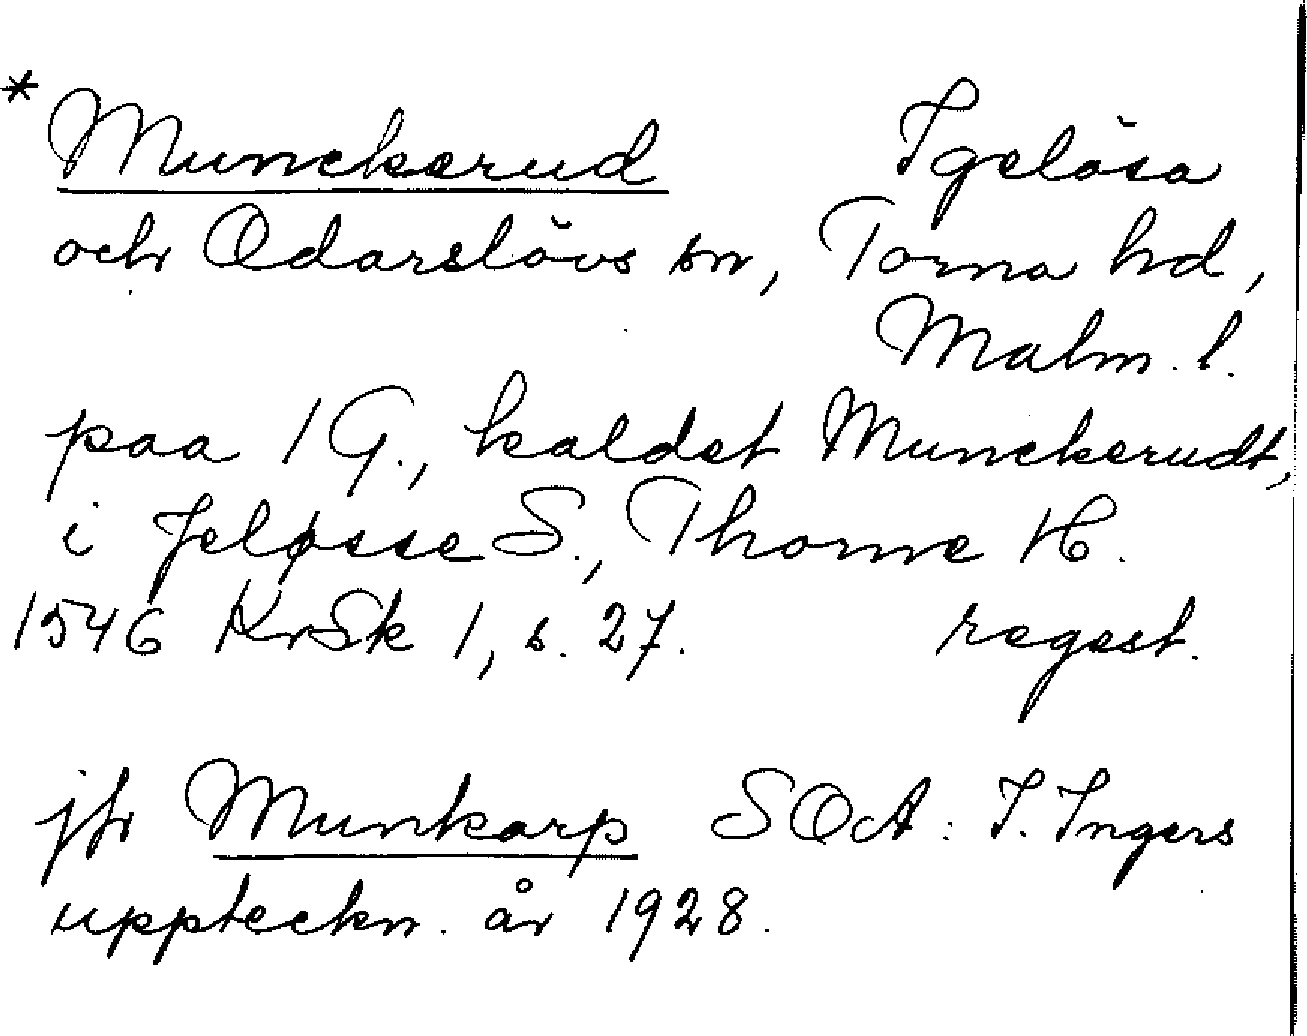 * Munckerud Igelösa
och Odarslövs sn, Torna hd,
Malm. l.
paa 1 G., kaldet Munckerudt,
i Jeløsse S., Thorne H.
1546 KrSk 1, s. 27. regest.
jfr Munkarp SOA: I. Ingers
uppteckn. år 1928.